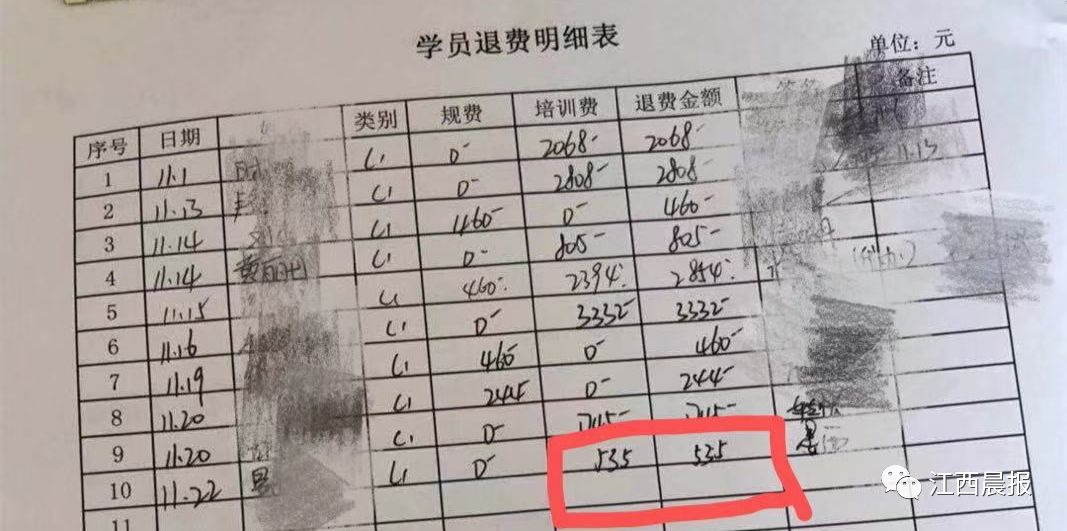 学员退费明细表
单位：元
序号 日期 类别 规费 培训费 退费金额 备注
1 11.1 C1 0- 2068- 2068-
2 11.13 C1 0- 2808- 2808- 11.13
3 11.14 C1 460- 0- 460-
4 11.14 C1 0- 805- 805-
5 11.15 C1 460- 2394- 2854-
6 11.16 C1 0- 3332- 3332-
7 11.19 C1 460- 0- 460-
8 11.20 C1 244- 0- 244-
9 11.20 C1 0-
10 11.22 C1 0- 535 535
11
江西晨报